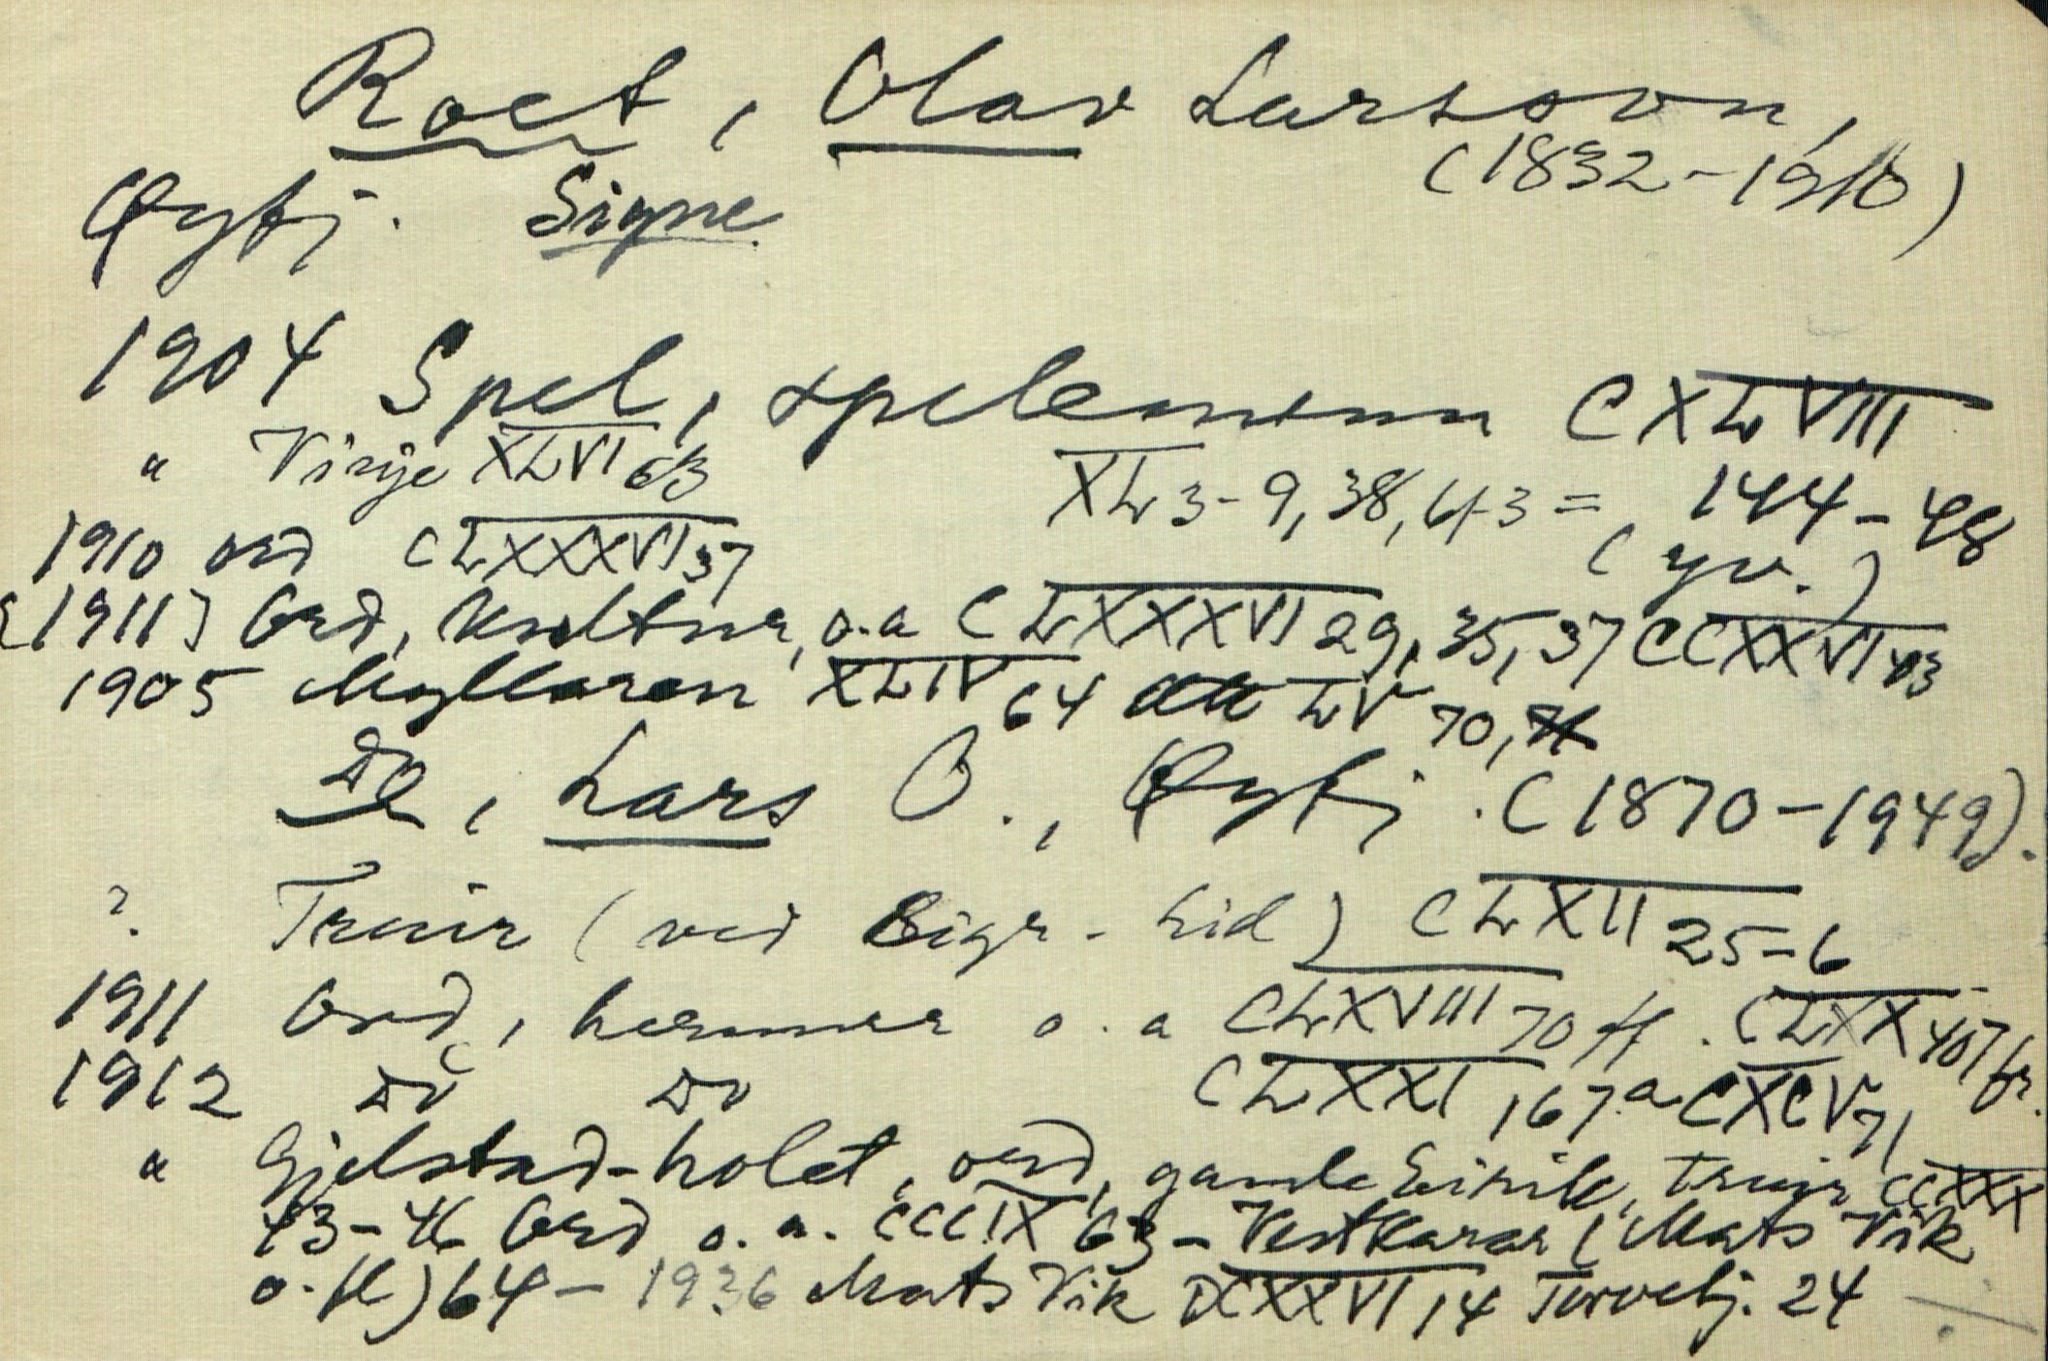 Roet, Olav Larsson,
(1832-1910)
Øyfj. Signe
1904 Spel, spelemenn CXLVIII
" Virje XLVI 63 XL 3-9, 38, 43 = 144-48
1910 ord CLXXXVI 37 (yv.)
[1911] Ord, kultur, o.a CLXXXVI 29, 35, 37 CCXXVI 43
1905 Myllaren XLIV 64 LV 70,
Do, Lars O., Øyfj. (1870-1949).
?. Truir (ved Sigr. Lid) CLXII 25-6
1911 Ord, hermur o.a CLXVIII 70 ff. CLXX 407 fr.
1912 Do Do CLXXI 167.a CXCV 71
" Gjelstad-holet, ord, gamle Eirik, truir CCXXX
43-46 Ord o.a. CCCIX 63 - Vestkarar (Mats Vik
o.fl) 64 - 1936 Mats Vik DCXXVI 14 Torvetj. 24